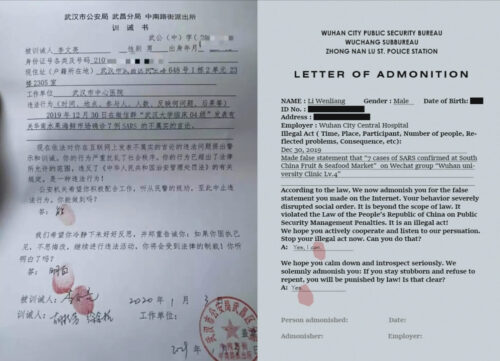 武汉市公安局 武昌分局 中南路街派出所
训 诫 书
武公(中)字(20
被训诫人 李文亮 性别 男 出生年月
身份证件名称及号码 210
现住址(户籍所在地)武汉市 648号1栋2单元23
楼2305室
工作单位 武汉市中心医院
违法行为(时间、地点、参与人、人数、反映何问题、后果等)
2019年12月30日在微信群“武汉大学临床04级”发表有
关华南水果海鲜市场确诊7例SARS的不属实的言论。
现在依法对你在互联网上发表不属实的言论的违法问题提出警
示和训诫。你的行为严重扰乱了社会秩序。你的行为已超出了法律
所允许的范围,违反了《中华人民共和国治安管理处罚法》的有关
规定,是一种违法行为!
公安机关希望你积极配合工作,听从民警的规劝,至此中止违
法行为。你能做到吗?
答: 能
我们希望你冷静下来好好反思,并郑重告诫你:如果你固执己
见,不思悔改,继续进行违法活动,你将会受到法律的制裁!你听
明白了吗?
答: 明白
被训诫人: 李文亮 2020年1月3
训诫人: 工作单位:
WUHAN CITY PUBLIC SECURITY BUREAU
WUCHANG SUBBUREAU
ZHONG NAN LU ST. POLICE STATION
LETTER OF ADMONITION
NAME : Li Wenliang Gender : Male Date of Birth:
ID No :
Address :
Employer : Wuhan City Central Hospital
Illegal Act ( Time, Place, Participant, Number of people, Re-
flected problems, Consequence, etc):
Dec 30, 2019
Made false statement that "7 cases of SARS confirmed at South
China Fruit & Seafood Market" on Wechat group "Wuhan uni-
versity Clinic Lv.4"
According to the law. We now admonish you for the false
statement you made on the Internet. Your behavior severely
disrupted social order. It is beyond the scope of law. It
violated the Law of the People's Republic of China on Public
Security Management Penalties. It is an illegal act!
We hope you actively cooperate and listen to our persuation.
Stop your illegal act now. Can you do that?
A: Yes, I can
We hope you calm down and introspect seriously. We
solemnly admonish you: If you stay stubborn and refuse to
repent, you will be punished by law! Is that clear?
A: Yes.
Person admonished: Date:
Admonisher: Employer: